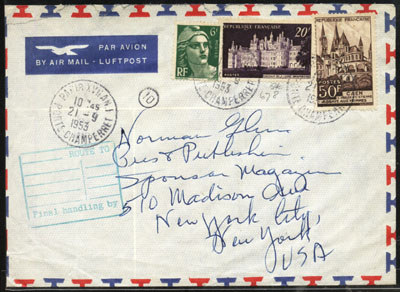 PAR AVION
BY AIR MAIL - LUFTPOST
RF
6F
REPUBLIQUE FRANÇAISE
20F
POSTES
REPUBLIQUE FRANÇAISE
POSTES
50F
CAEN
ABBAYE AUX HOMMES
10
10 45
21 - 9
1953
R. CHAMPERRET
ROUTE TO
Final handling by
Norman Glenn
Pres & Publisher
Sponsor Magazine
510 Madison Ave
New York City,
New York,
USA